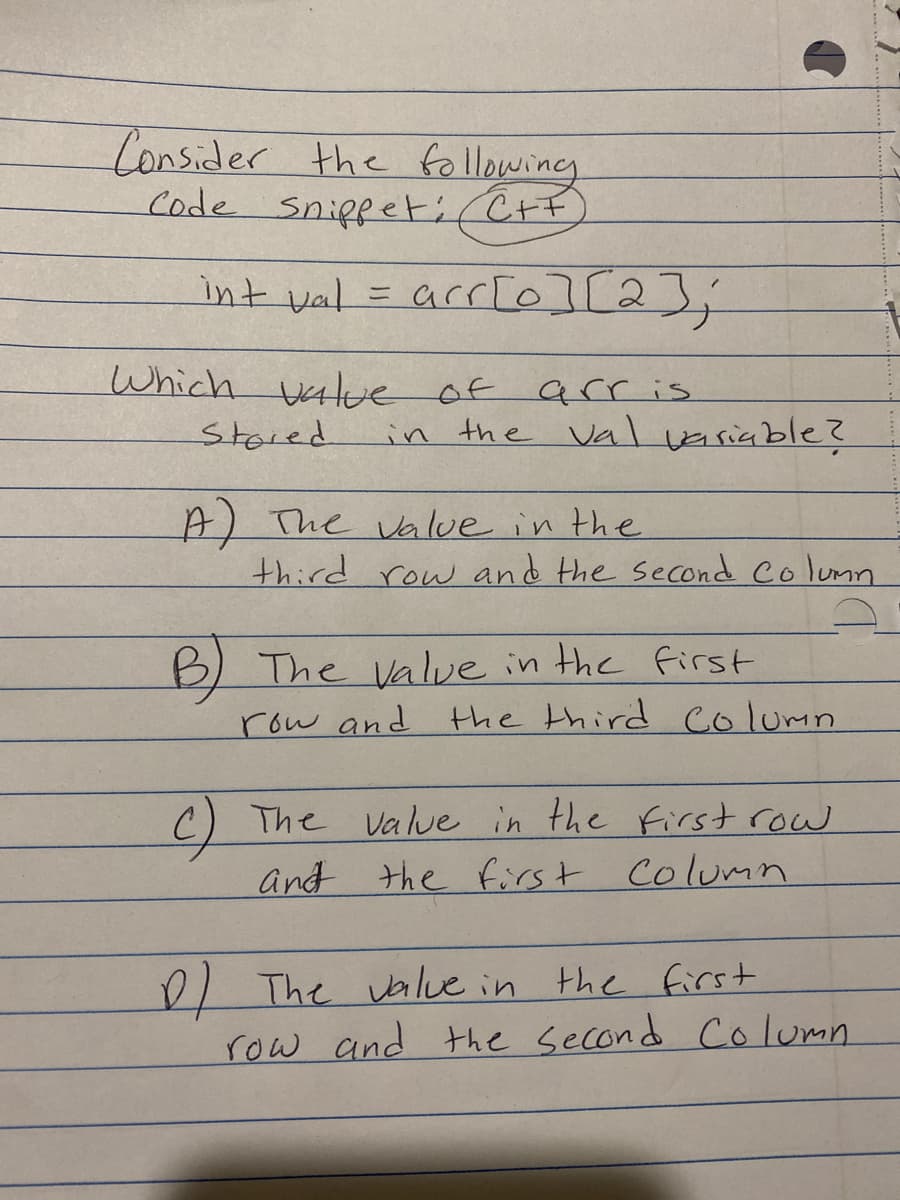 Consider the following
Code snippet: C++
int val = arr[0][2];
Which value of arr is
stored in the val variable?
A) The value in the
third row and the second Column
B) The value in the first
row and the third Column
C) The value in the first row
and the first Column
D) The value in the first
row and the second Column